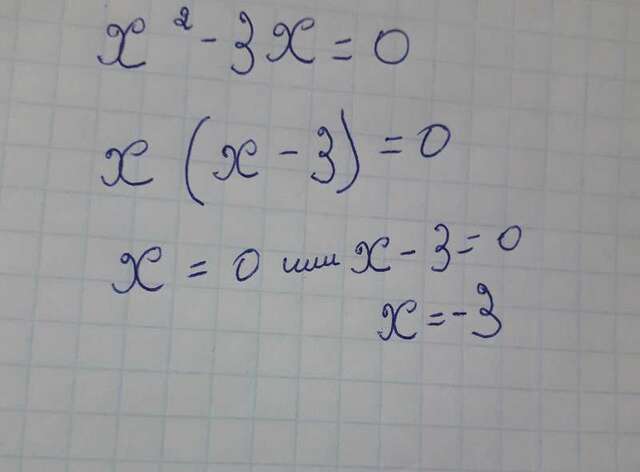 x² - 3x = 0
x (x - 3) = 0
x = 0 или x - 3 = 0
x = -3